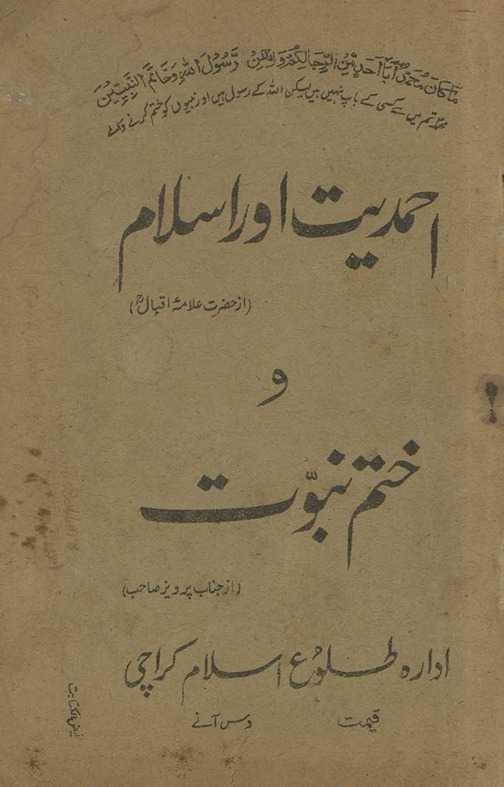 مَّا كَانَ مُحَمَّدٌ أَبَا أَحَدٍ مِّن رِّجَالِكُمْ وَلَٰكِن رَّسُولَ اللَّهِ وَخَاتَمَ النَّبِيِّينَ
محمدؐ تم میں سے کسی کے باپ نہیں ہیں لیکن اللہ کے رسول ہیں اور نبیوں کو ختم کرنے والے
احمدیت اور اسلام
(از حضرت علامہ اقبالؒ)
و
ختم نبوّت
(از جناب پرویز صاحب)
ادارہ طلوُع اسلام کراچی
قیمت دس آنے